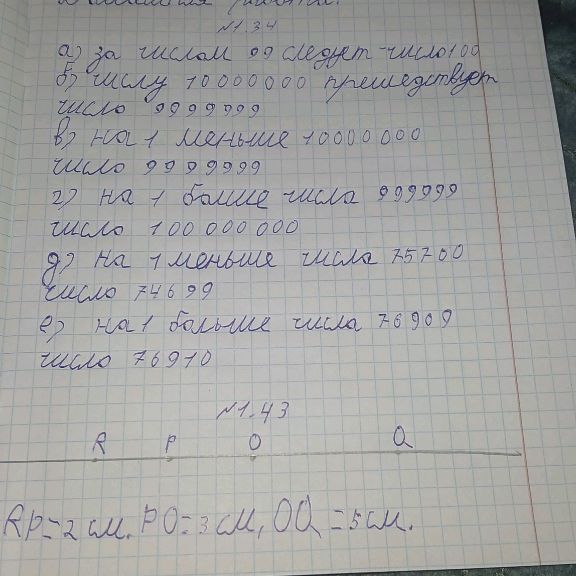 Домашняя работа.
№1.34
а) за числом 99 следует число 100
б) числу 10000000 прешедствует
число 9999999
в) на 1 меньше 10000000
число 9999999
г) на 1 болше числа 999999
число 100 000 000
д) на 1 меньше числа 75700
число 74699
е) на 1 больше числа 76909
число 76910
№1.43
R P O Q
RP=2 см. PO=3 см, OQ=5 см.